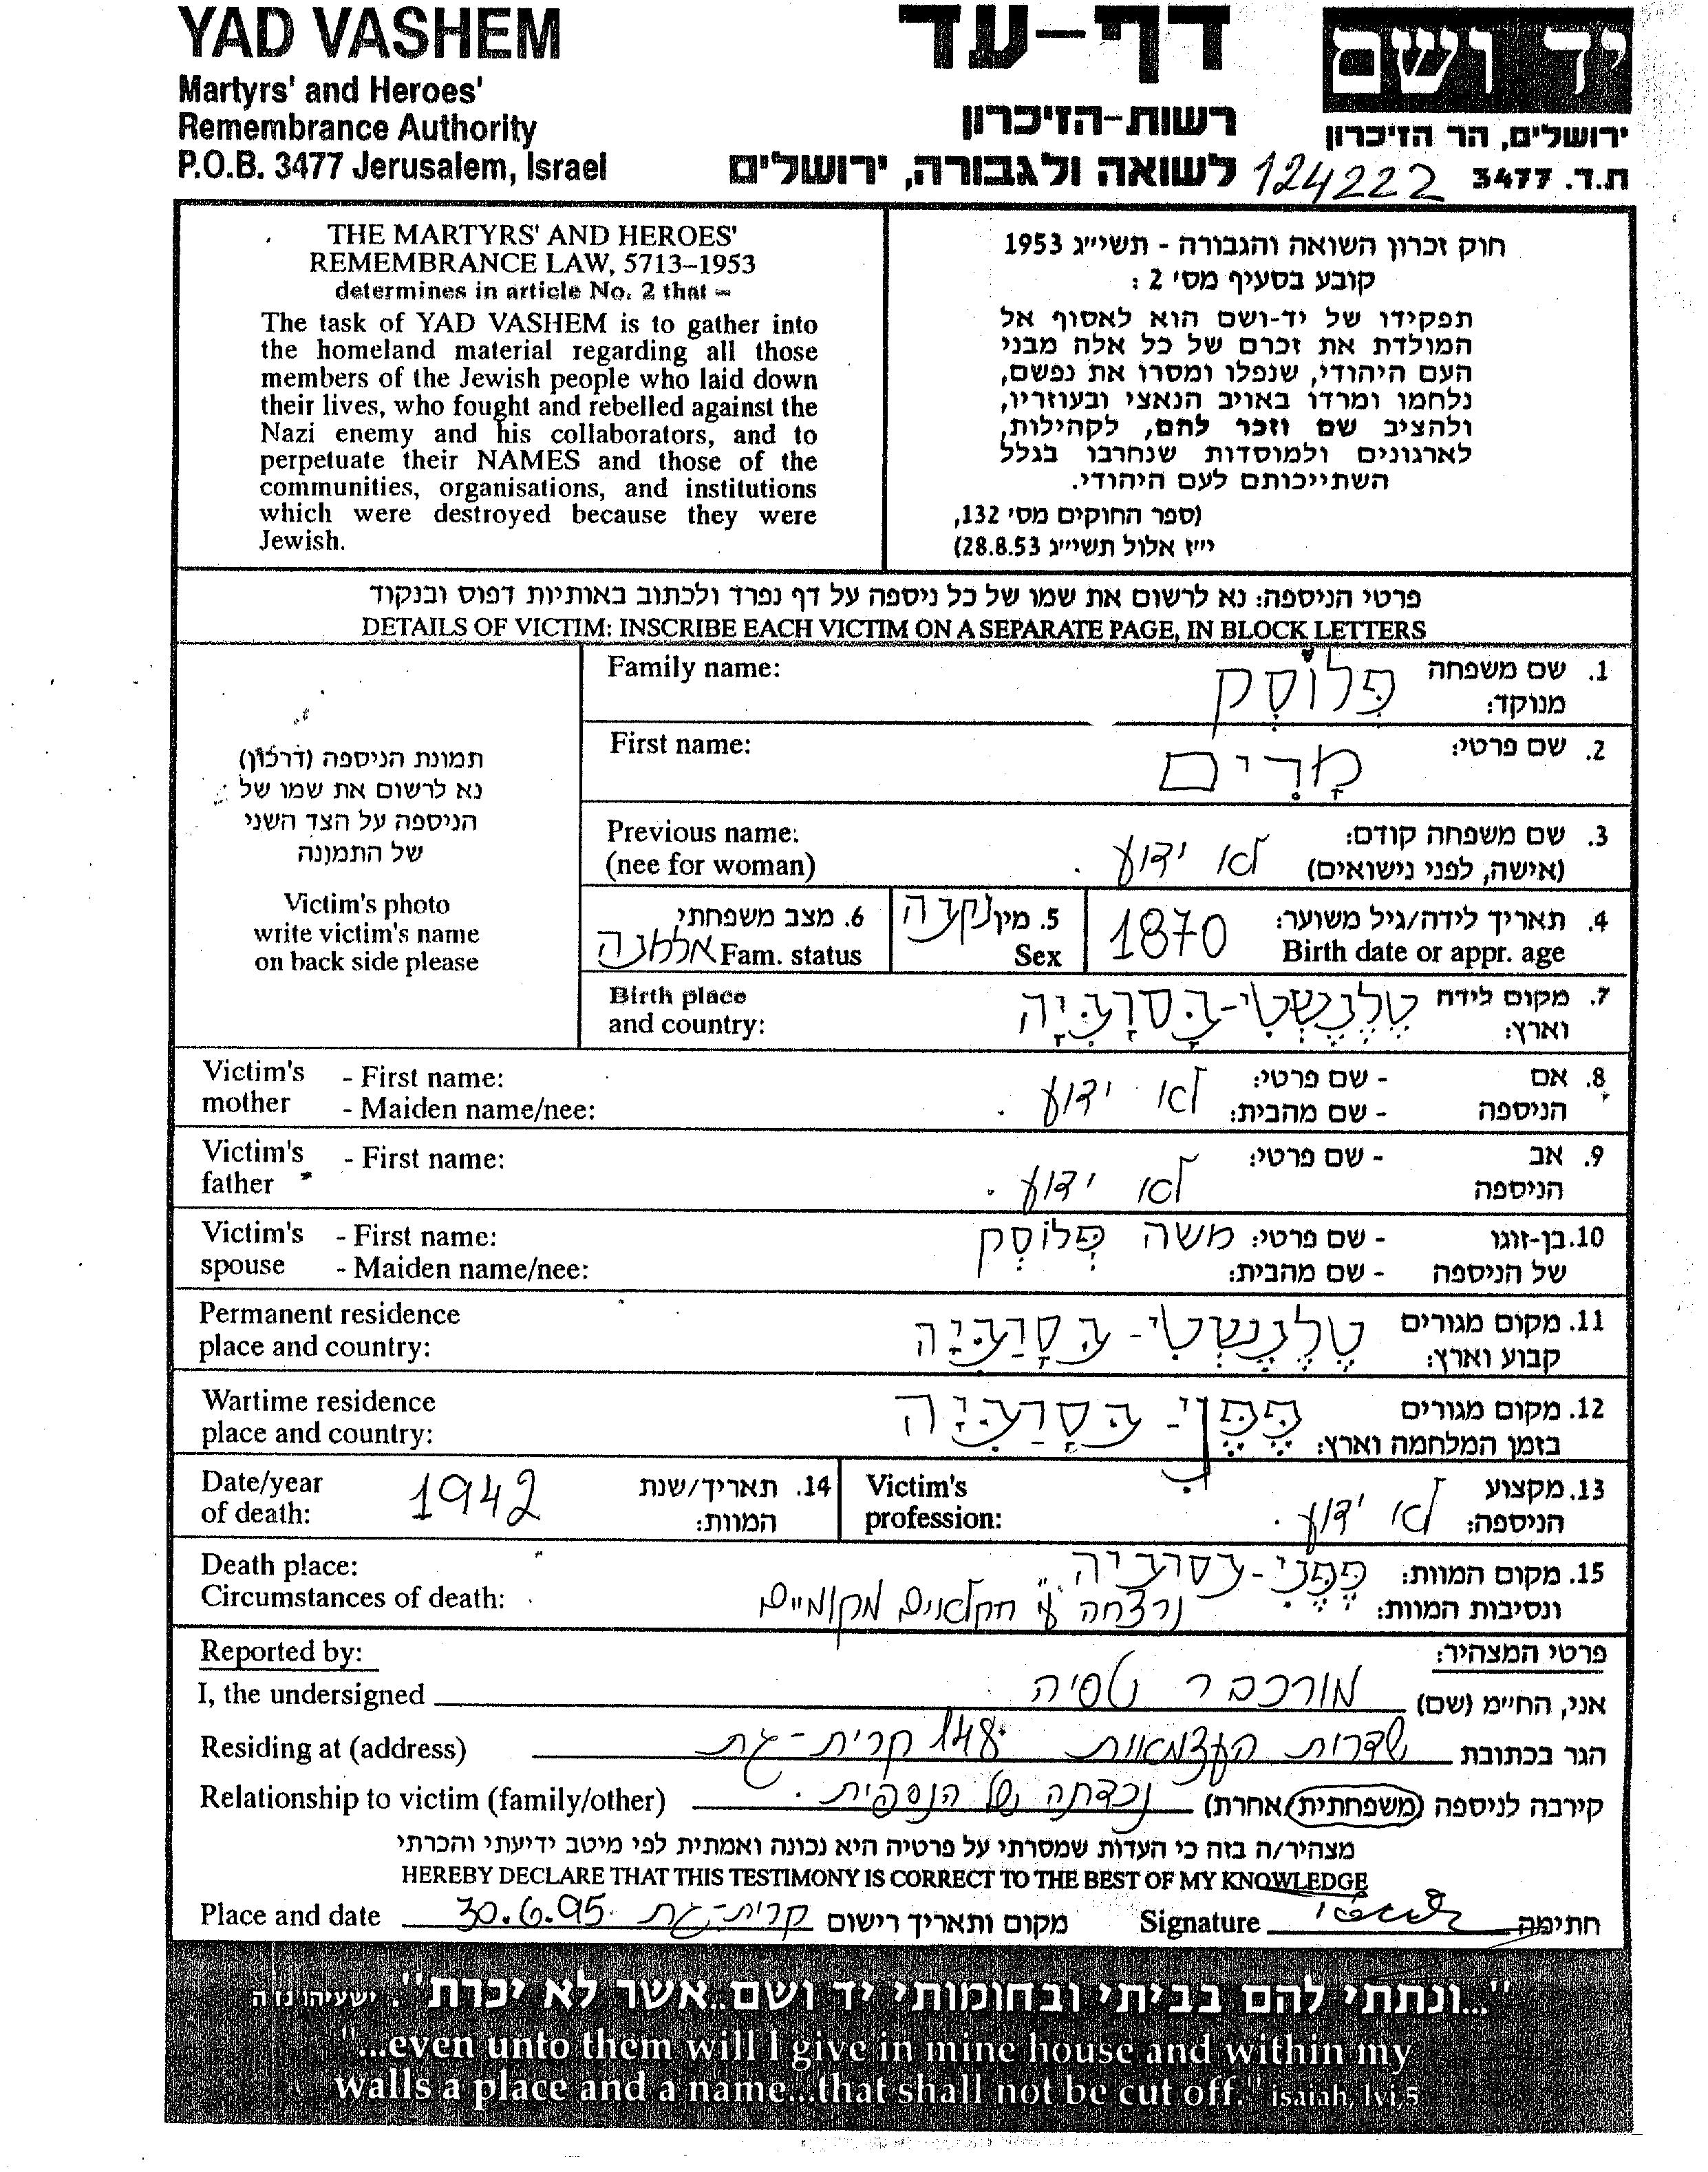 YAD VASHEM
Martyrs' and Heroes'
Remembrance Authority
P.O.B. 3477 Jerusalem, Israel
דף-עד
רשות-הזיכרון
לשואה ולגבורה, ירושלים
יד ושם
ירושלים, הר הזיכרון
ת.ד. 3477
124222
THE MARTYRS' AND HEROES'
REMEMBRANCE LAW, 5713–1953
determines in article No. 2 that –
The task of YAD VASHEM is to gather into
the homeland material regarding all those
members of the Jewish people who laid down
their lives, who fought and rebelled against the
Nazi enemy and his collaborators, and to
perpetuate their NAMES and those of the
communities, organisations, and institutions
which were destroyed because they were
Jewish.
חוק זכרון השואה והגבורה - תשי״ג 1953
קובע בסעיף מס׳ 2:
תפקידו של יד-ושם הוא לאסוף אל
המולדת את זכרם של כל אלה מבני
העם היהודי, שנפלו ומסרו את נפשם,
נלחמו ומרדו באויב הנאצי ובעוזריו,
ולהציב שם וזכר להם, לקהילות,
לארגונים ולמוסדות שנחרבו בגלל
השתייכותם לעם היהודי.
(ספר החוקים מס׳ 132,
י״ז אלול תשי״ג 28.8.53)
פרטי הניספה: נא לרשום את שמו של כל ניספה על דף נפרד ולכתוב באותיות דפוס ובנקוד
DETAILS OF VICTIM: INSCRIBE EACH VICTIM ON A SEPARATE PAGE, IN BLOCK LETTERS
תמונת הניספה (דרכון)
נא לרשום את שמו של
הניספה על הצד השני
של התמונה
Victim's photo
write victim's name
on back side please
Family name: פלוסק 1. שם משפחה
מנוקד:
First name: מרים 2. שם פרטי:
Previous name: 3. שם משפחה קודם:
(nee for woman) לא ידוע. (אישה, לפני נישואים)
4. תאריך לידה/גיל משוער: 1870
Birth date or appr. age
5. מין נקבה
Sex
6. מצב משפחתי
Fam. status אלמנה
Birth place טלנשטי-בסרביה 7. מקום לידה
and country: וארץ:
Victim's - First name: - שם פרטי: 8. אם
mother - Maiden name/nee: לא ידוע. - שם מהבית: הניספה
Victim's - First name: - שם פרטי: 9. אב
father לא ידוע. הניספה
Victim's - First name: משה פלוסק - שם פרטי: 10. בן-זוגו
spouse - Maiden name/nee: - שם מהבית: של הניספה
Permanent residence 11. מקום מגורים
place and country: טלנשטי-בסרביה קבוע וארץ:
Wartime residence 12. מקום מגורים
place and country: בסרביה בזמן המלחמה וארץ:
Date/year 1942 14. תאריך/שנת
of death: המוות:
Victim's 13. מקצוע
profession: לא ידוע. הניספה:
Death place: פפני-בסרביה 15. מקום המוות:
Circumstances of death: נרצחה ע״י חקלאים מקומיים ונסיבות המוות:
Reported by: פרטי המצהיר:
I, the undersigned מורכבר אני, החי״מ (שם)
Residing at (address) שדרות העצמאות 148 קרית-גת הגר בכתובת
Relationship to victim (family/other) נכדתה של הנספית. קירבה לניספה (משפחתית/אחרת)
מצהיר/ה בזה כי העדות שמסרתי על פרטיה היא נכונה ואמתית לפי מיטב ידיעתי והכרתי
HEREBY DECLARE THAT THIS TESTIMONY IS CORRECT TO THE BEST OF MY KNOWLEDGE
Place and date 30.6.95 קרית-גת מקום ותאריך רישום Signature חתימה
"...ונתתי להם בביתי ובחומותי יד ושם..אשר לא יכרת". ישעיהו נו ה
"...even unto them will I give in mine house and within my
walls a place and a name...that shall not be cut off." isaiah, lvi,5